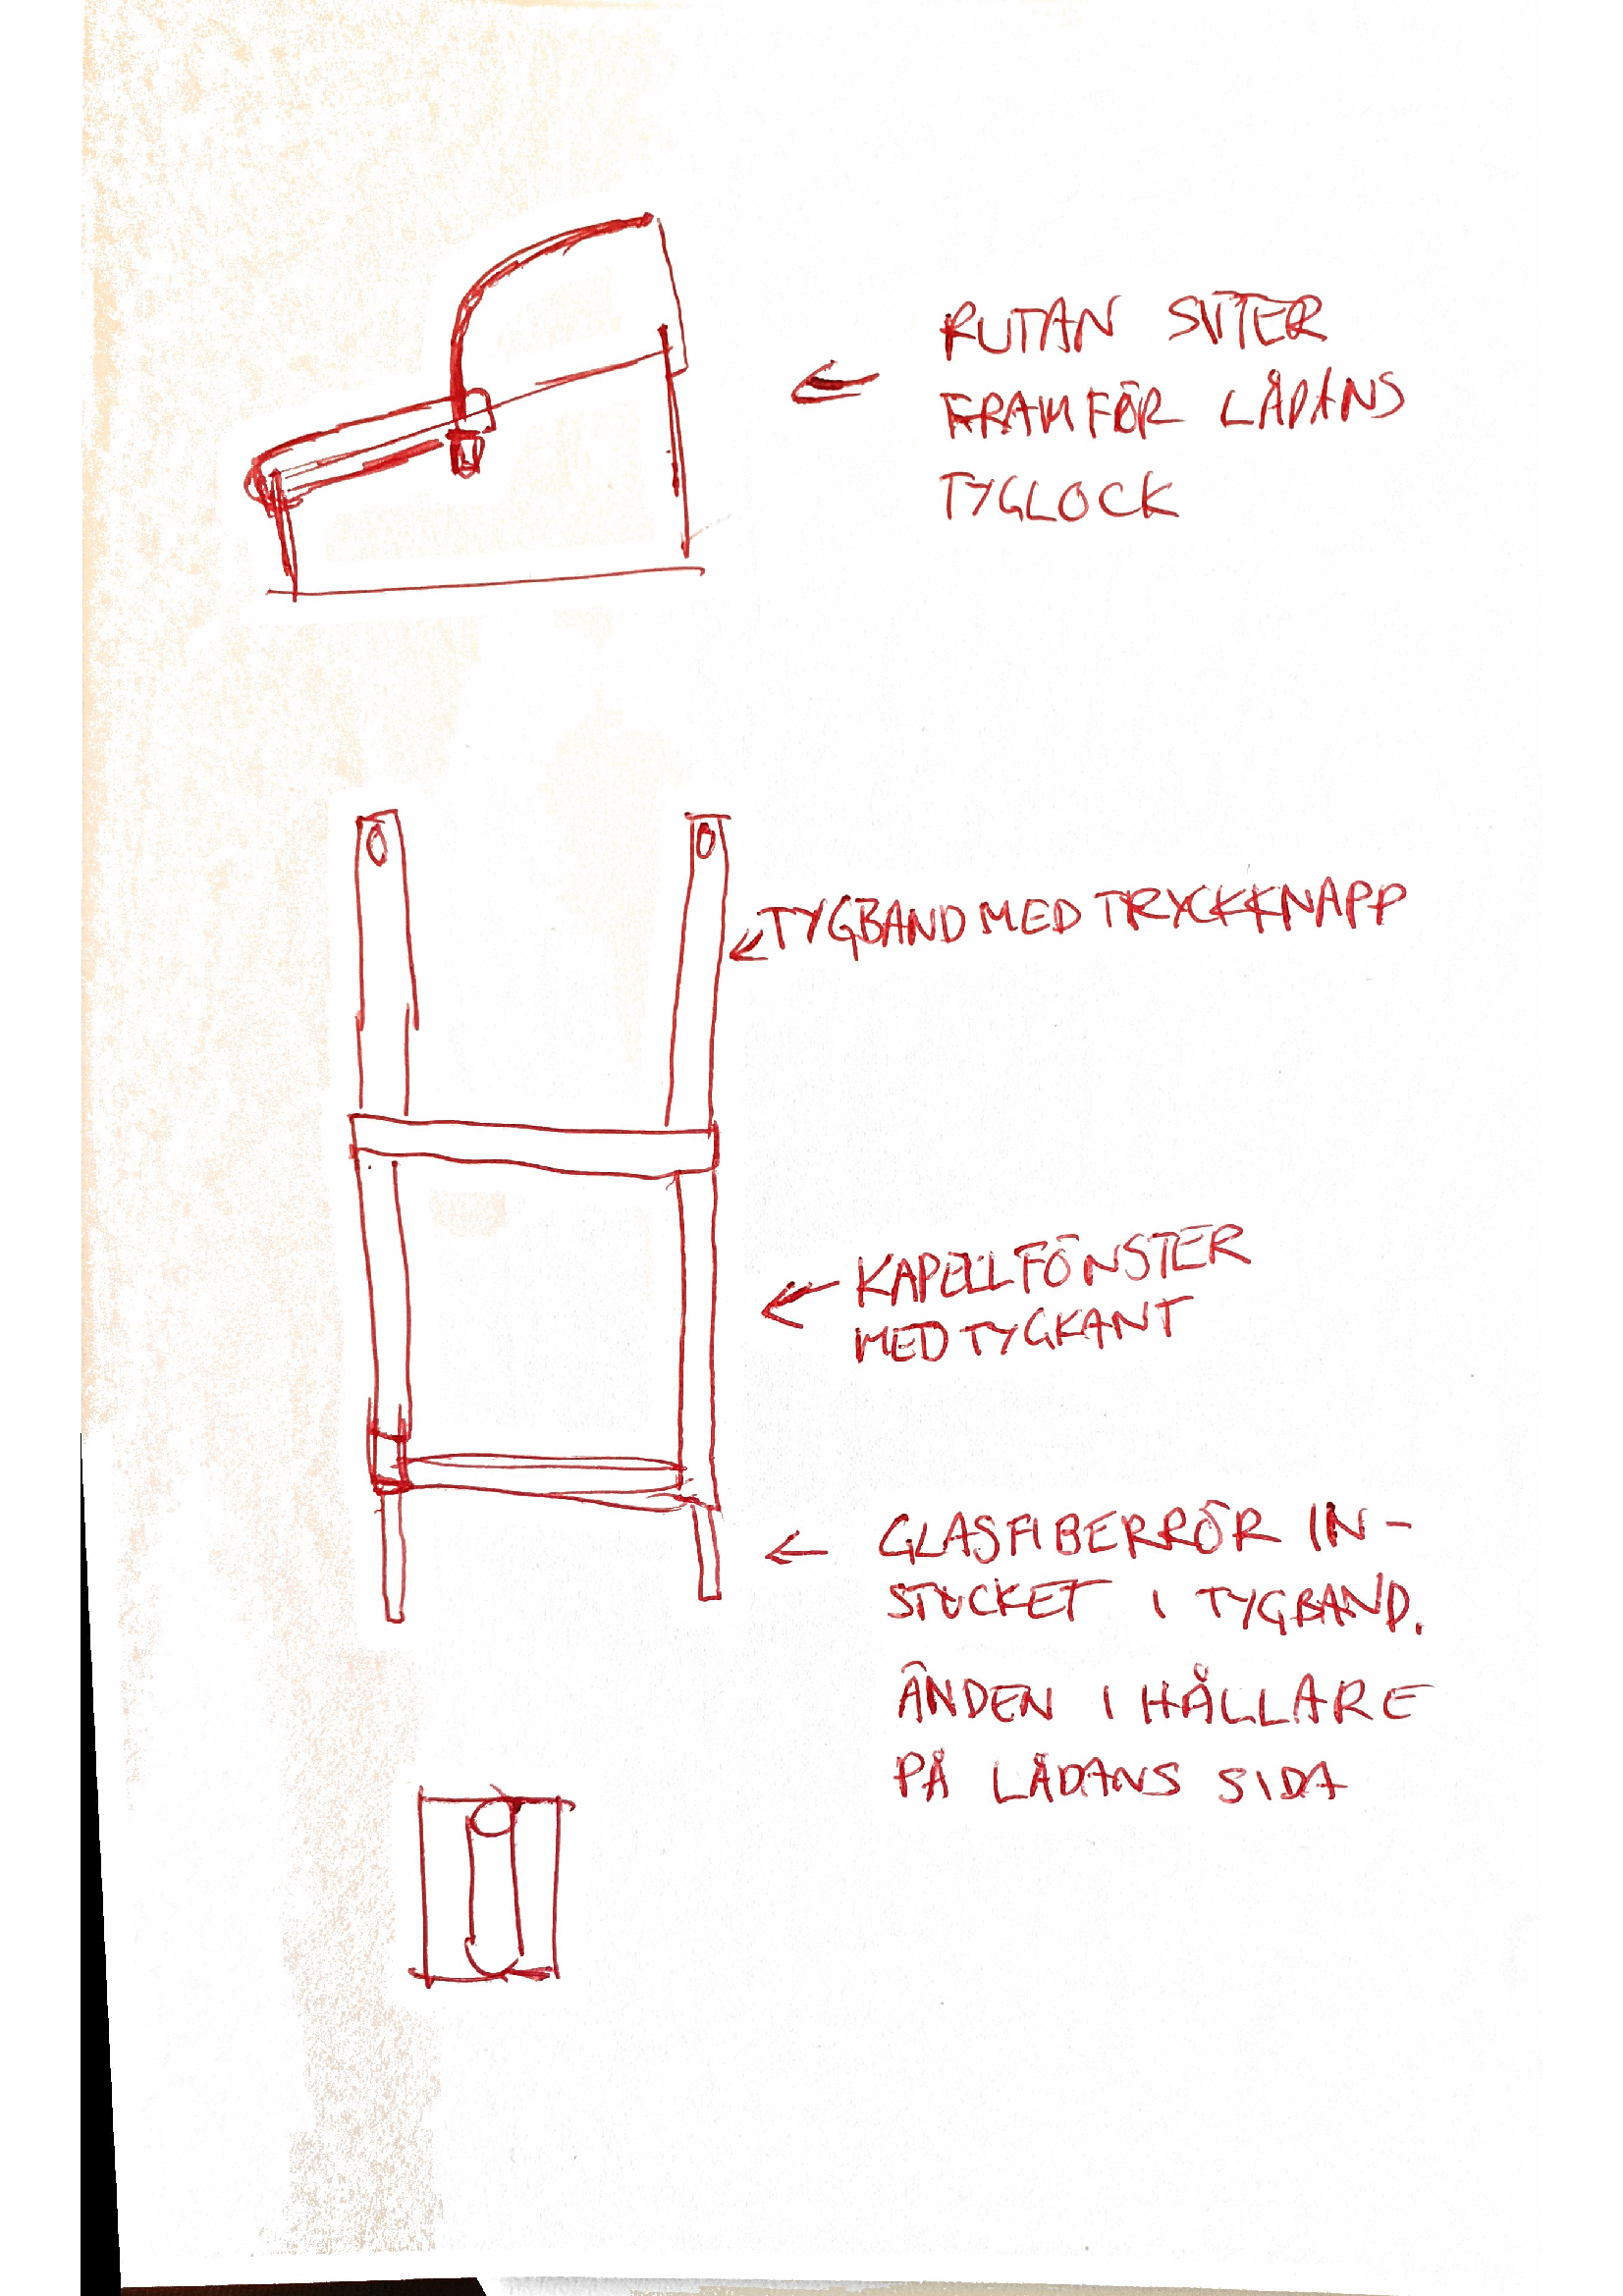 RUTAN SITTER
FRAMFÖR LÅDANS
TYGLOCK
TYGBAND MED TRYCKKNAPP
KAPELLFÖNSTER
MED TYGKANT
GLASFIBERRÖR IN-
STUCKET I TYGBAND.
ÄNDEN I HÅLLARE
PÅ LÅDANS SIDA